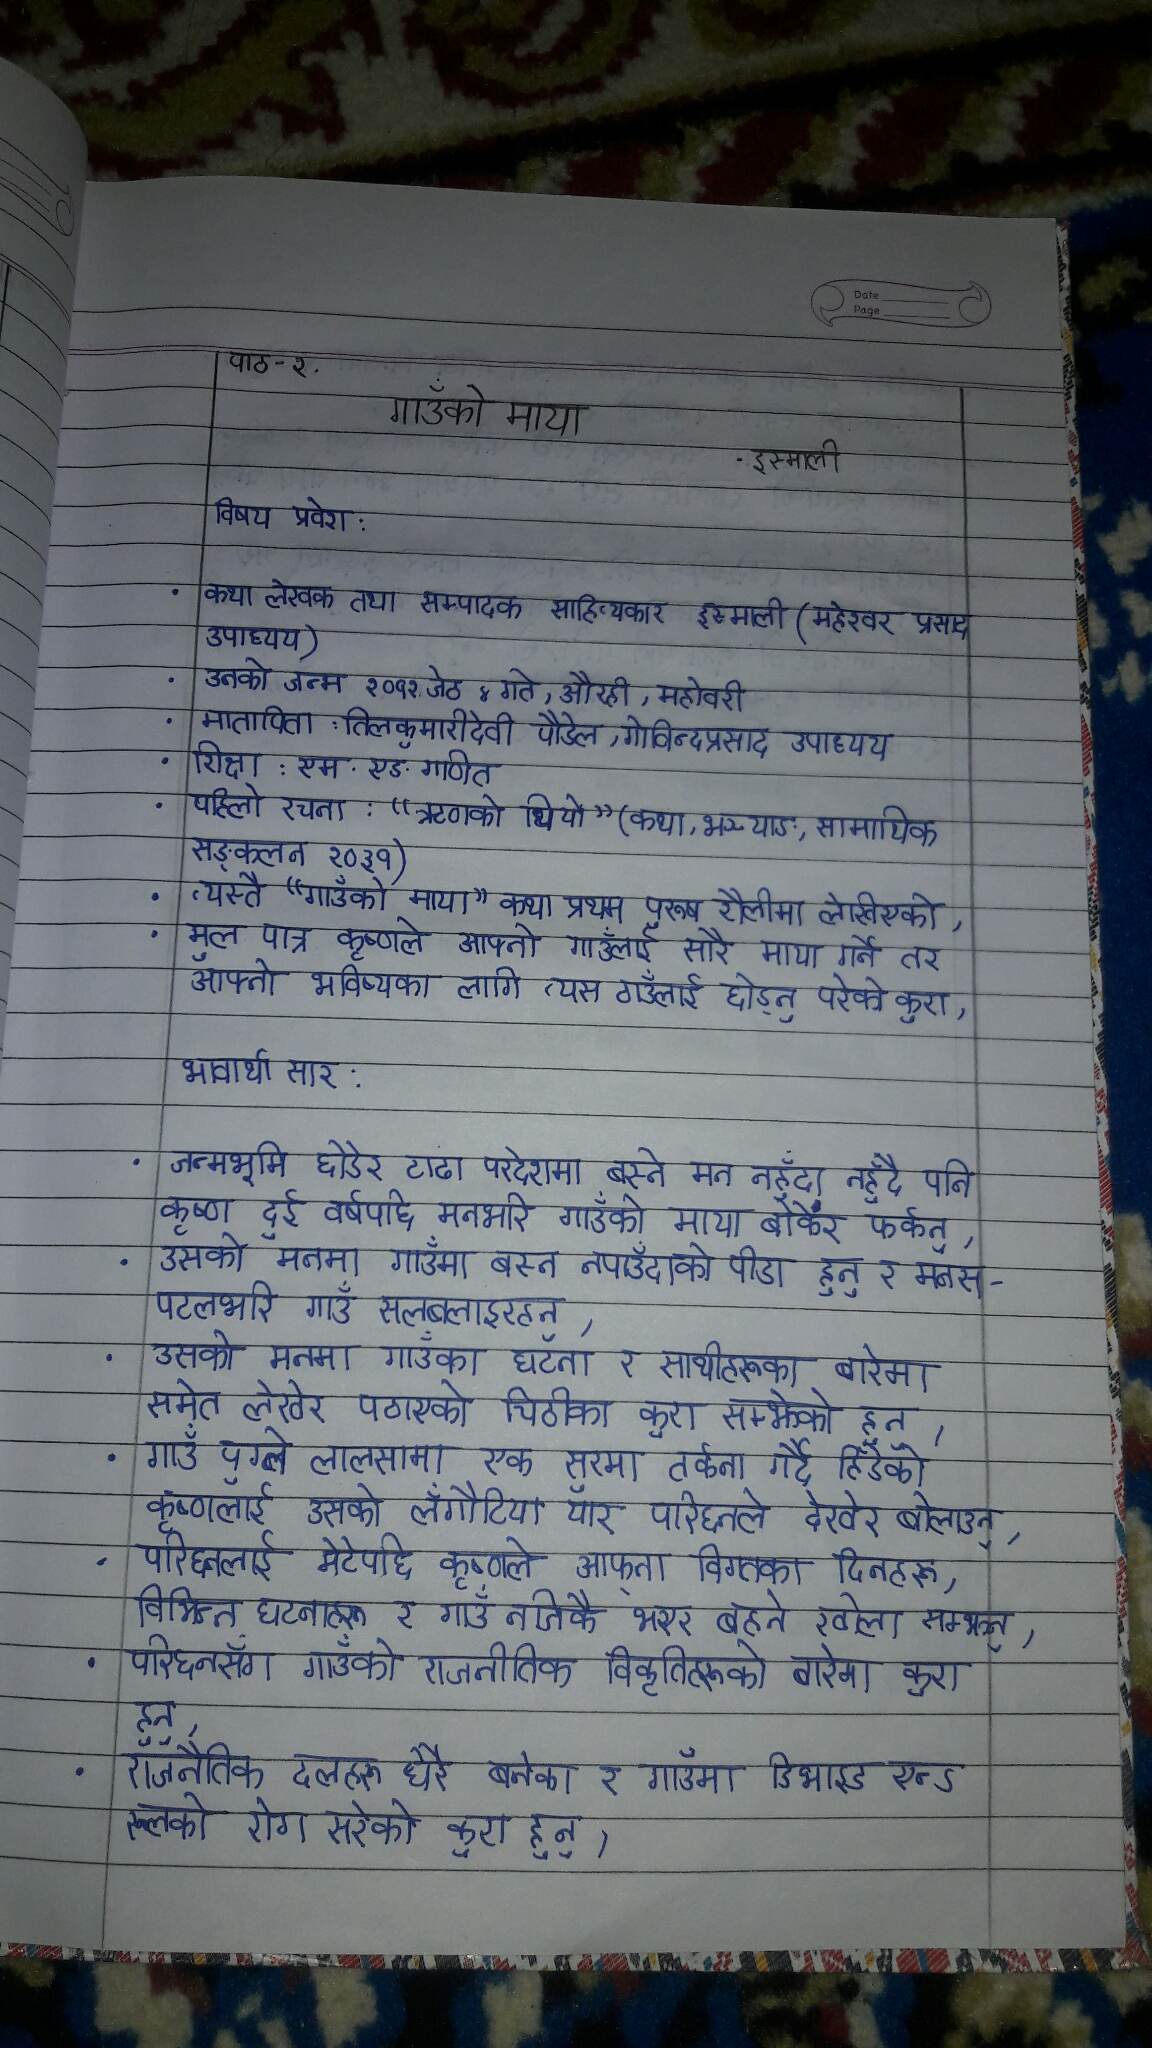 Date
Page
पाठ-२.
गाउँको माया
- इस्माली
विषय प्रवेश :
• कथा लेखक तथा सम्पादक साहित्यकार इस्माली (महेश्वर प्रसाद
उपाध्यय)
• उनको जन्म २०१२ जेठ ४ गते, औरही, महोत्तरी
• मातापिता : तिलकुमारीदेवी पौडेल, गोविन्दप्रसाद उपाध्यय
• शिक्षा : एम. एड. गणित
• पहिलो रचना : “ऋणको थियो” (कथा, भर्‍याङ, सामायिक
सङ्कलन २०३१)
• त्यस्तै “गाउँको माया” कथा प्रथम पुरूष शैलीमा लेखिएको,
• मुल पात्र कृष्णले आफ्नो गाउँलाई साह्रै माया गर्ने तर
आफ्नो भविष्यका लागि त्यस ठाउँलाई छोड्नु परेको कुरा,
भावार्थ। सार :
• जन्मभूमि छोडेर टाढा परदेशमा बस्ने मन नहुँदा नहुँदै पनि
कृष्ण दुई वर्षपछि मनभरि गाउँको माया बोकेर फर्कनु,
• उसको मनमा गाउँमा बस्न नपाउँदाको पीडा हुनु र मनस-
पटलभरि गाउँ सलबलाइरहनु,
• उसको मनमा गाउँका घटना र साथीहरूका बारेमा
समेत लेखेर पठाएको चिठीका कुरा सम्झेको हुन,
• गाउँ पुग्ने लालसामा एक सुरमा तर्कना गर्दै हिँडेको
कृष्णलाई उसको लँगौटिया यार परिछनले देखेर बोलाउनु,
• परिछनलाई भेटेपछि कृष्णले आफ्ना विगतका दिनहरू,
विभिन्न घटनाहरू र गाउँ नजिकै भएर बहने खोला सम्झनु,
• परिछनसँग गाउँको राजनीतिक विकृतिहरूको बारेमा कुरा
हुनु,
• राजनैतिक दलहरू धेरै बनेका र गाउँमा डिभाइड एन्ड
रूलको रोग सरेको कुरा हुनु,